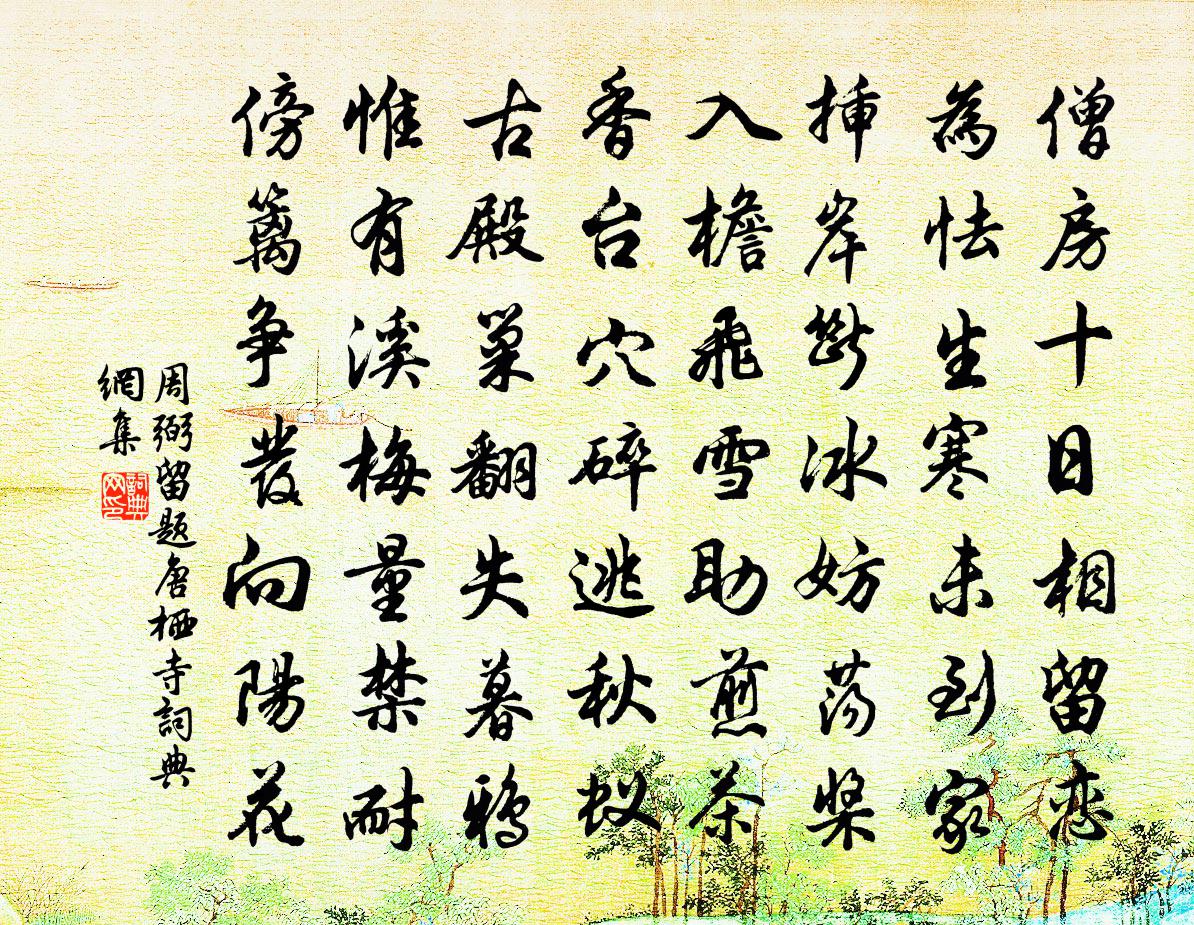 僧房十日相留恋
為怯生寒未到家
挿岸斷冰妨蕩槳
入檐飛雪助煎茶
香台穴碎逃秋蚁
古殿巢翻失暮鴉
惟有溪梅量禁耐
傍籬爭發向陽花
周弼留題唐栖寺詞典
網集
詞典
网印